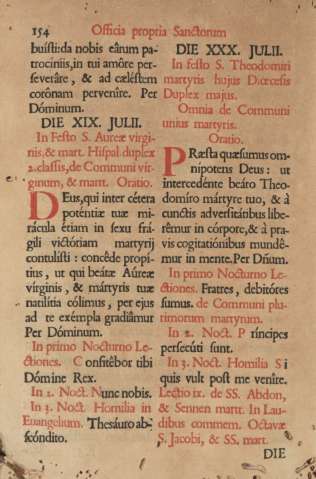 154 Officia propria Sanctorum
buisti: da nobis eârum pa-
trocíniis, in tui amôre per-
severâre, & ad cæléstem
corônam pervenîre. Per
Dóminum.
DIE XIX. JULII.
In Festo S. Aureæ virgi-
nis, & mart. Hispal. duplex
2. classis, de Communi vir-
ginum, & martt. Oratio.
DEus, qui inter cétera
poténtiæ tuæ mi-
rácula étiam in sexu frá-
gili victóriam martyrij
contulísti: concêde propí-
tius, ut qui beátæ Aúreæ
vírginis, & mártyris tuæ
natilítia cólimus, per ejus
ad te exémpla gradiâmur
Per Dóminum.
In primo Nocturno Le-
ctiones. Confitêbor tibi
Dómine Rex.
In 2. Noct. Nunc nobis.
In 3. Noct. Homilia in
Euangelium. Thesáuro ab-
scóndito.
DIE XXX. JULII.
In festo S. Theodomiri
martyris hujus Diœcesis
Duplex majus.
Omnia de Communi
unius martyris.
Oratio.
PRæsta quæsumus om-
nípotens Deus: ut
intercedénte beáto Theo-
domíro mártyre tuo, & à
cunctis adversitátibus libe-
rêmur in córpore, & à pra-
vis cogitatiónibus mundê-
mur in mente. Per Dñum.
In primo Nocturno Le-
ctiones. Fratres, debitóres
sumus. de Communi plu-
rimorum martyrum.
In 2. Noct. Príncipes
persecúti sunt.
In 3. Noct. Homilia Si
quis vult post me venîre.
Lectio ix. de SS. Abdon,
& Sennen martt. In Lau-
dibus commem. Octavæ
S. Jacobi, & SS. mart.
DIE